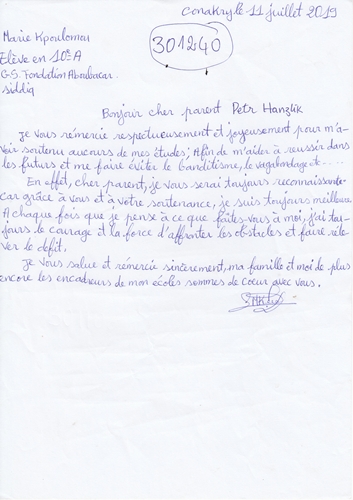 Conakry le 11 juillet 2019
Marie Kpoulomou
301240
Elève en 10e A
G.S. Fondation Aboubacar
Siddiq
Bonjour cher parent Petr Hanzlik
Je vous rémercie respectueusement et joyeusement pour m'a-
voir soutenu aucours de mes études; Afin de m'aider à reussir dans
les futurs et me faire éviter le banditisme, le vagabondage etc....
En effet, cher parent, je vous serai toujours reconnaissante
car grâce à vous et à votre soutenance, je suis toujours meilleure
A chaque fois que je pense à ce que faites-vous à moi, j'ai tou-
jours le courage et la force d'affronter les obstacles et faire rele-
ver le défit.
Je vous salue et rémercie sincèrement, ma famille et moi de plus
encore les encadreurs de mon écoles sommes de coeur avec vous.